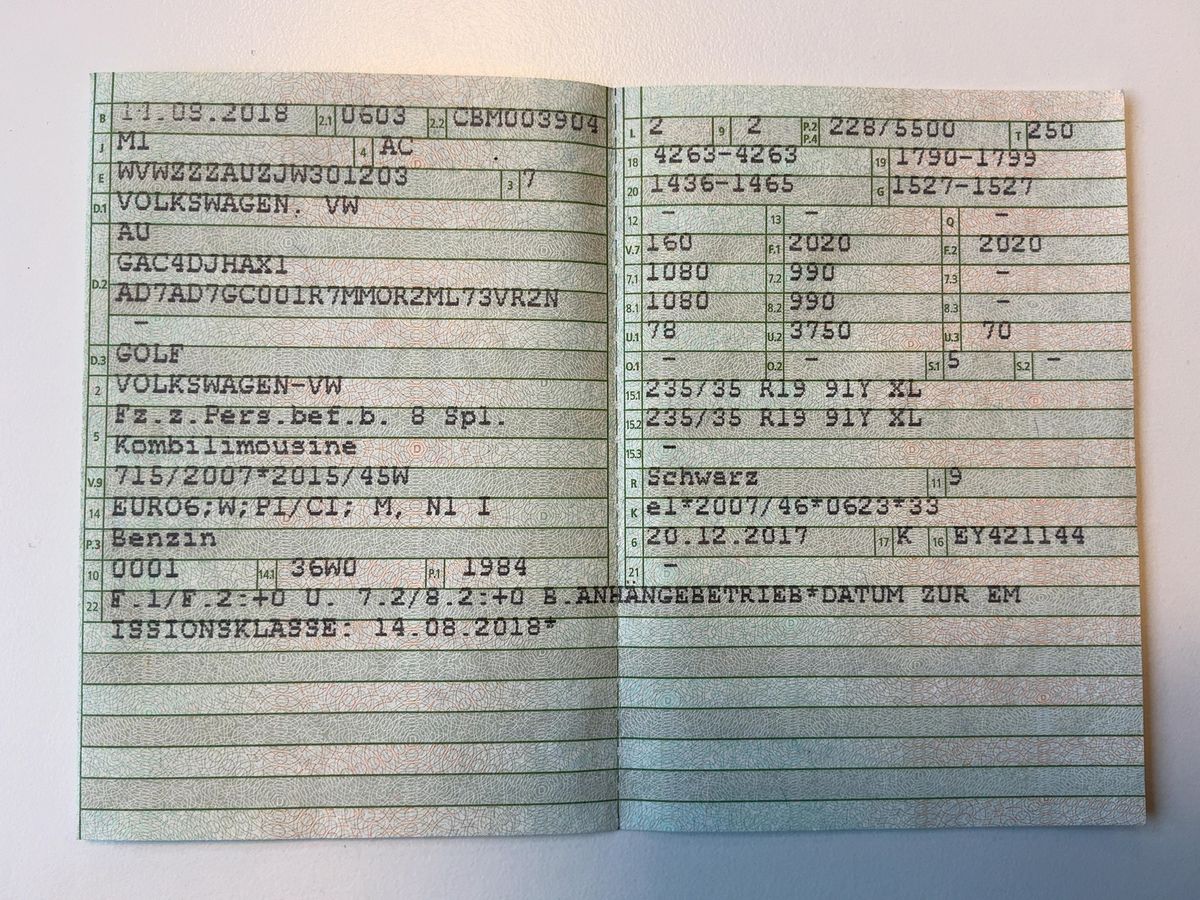 B 14.08.2018 2.1 0603 2.2 CBM003904
J M1 4 AC
E WVWZZZAUZJW301203 3 7
D.1 VOLKSWAGEN. VW
AU
D.2 GAC4DJHAX1
AD7AD7GC001R7MMOR2ML73VR2N
-
D.3 GOLF
2 VOLKSWAGEN-VW
5 Fz.z.Pers.bef.b. 8 Spl.
Kombilimousine
V.9 715/2007*2015/45W
14 EURO6;W;PI/CI; M, N1 I
P.3 Benzin
10 0001 14.1 36W0 P.1 1984
22 F.1/F.2:+0 U. 7.2/8.2:+0 B.ANHÄNGEBETRIEB*DATUM ZUR EM
ISSIONSKLASSE: 14.08.2018*
L 2 9 2 P.2 P.4 228/5500 T 250
18 4263-4263 19 1790-1799
20 1436-1465 G 1527-1527
12 - 13 - Q -
V.7 160 F.1 2020 F.2 2020
7.1 1080 7.2 990 7.3 -
8.1 1080 8.2 990 8.3 -
U.1 78 U.2 3750 U.3 70
O.1 - O.2 - S.1 5 S.2 -
15.1 235/35 R19 91Y XL
15.2 235/35 R19 91Y XL
15.3 -
R Schwarz 11 9
K e1*2007/46*0623*33
6 20.12.2017 17 K 16 EY421144
21 -